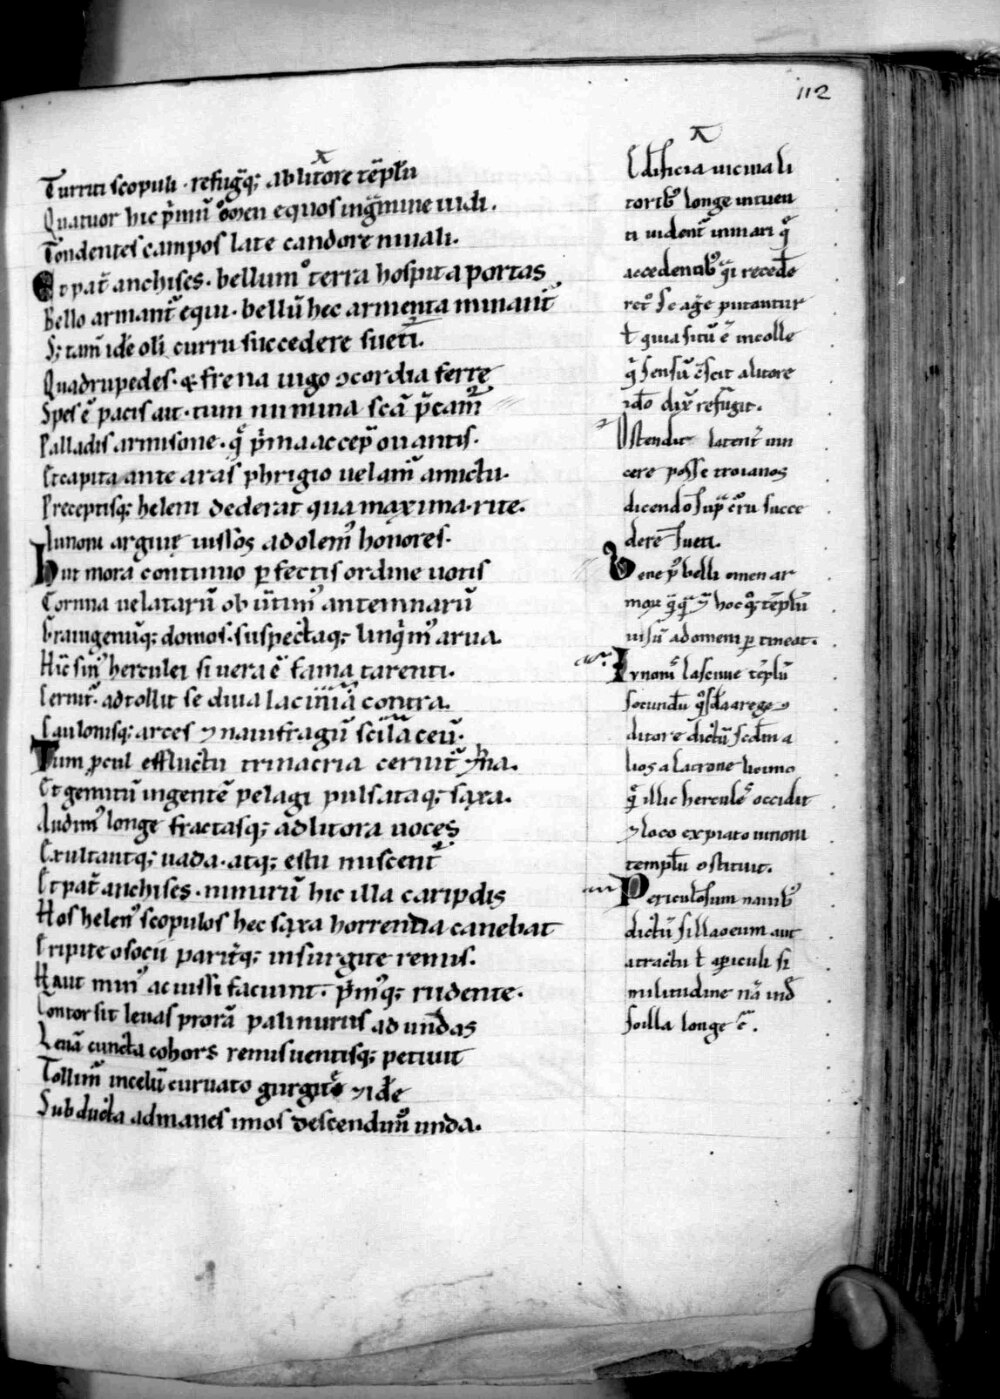 112
Turriti scopuli · refugitq; ab litore tēplū
Quatuor hic p̄mū omen equos in g̃mine uidi.
Tondentes campos late candore niuali.
Et pat̄ anchises · bellum o terra hospita portas
Bello armant̄ equi · bellū hec armenta minant̄
S; tam̄ idē oli curru succedere sueti.
Quadrupedes · & frena iugo ɔcordia ferre
Spes ē pacis ait · tum numina scā p̄cam̄
Palladis armisone · q̄ p̄ma accep̄ ouantis.
Et capita ante aras phrigio uelam̄ amictu.
Preceptisq; heleni dederat qua maxima · rite.
Iunoni argiuę iussos adolem᾽ honores.
Haut mora continuo pfectis ordine uotis
Cornua uelatarū obuertim᾽ antemnarū
Graiugenūq; domos · suspectaq; linqm᾽ arua.
Hic sin᾽ herculei si uera ē fama tarenti.
Cernit̄ · adtollit se diua laciniā contra.
Caulonisq; arces ⁊ naufragū scilaceū.
Tum pcul effluctu trinacria cernit̄ ethna.
Et gemitū ingentē pelagi pulsataq; saxa.
Audim᾽ longe fractasq; ad litora uoces
Exultantq; uada · atq; estu miscent̄
Et pat̄ anchises · nimirū hic illa caripdis
Hos helen᾽ scopulos hec saxa horrenda canebat
Eripite o socii paritq; insurgite remis.
Haut min᾽ ac iussi faciunt · p̄m᾽q; rudente.
Contorsit leuas prorā palinurus ad undas
Leuā cuncta cohors remis uentisq; petiuit
Tollim̄ in celū curuato gurgite ⁊ idē
Subducta ad manes imos descendim᾽ unda.
Edificia uicina li
torib᾽ longe intuen
ti uident̄ in mari q̊
accedentib᾽ q̄i recede
re t᾽ se agē putantur
ł quia sitū ē in colle
q̄ sensū crescit a litore
idō dix̄ refugit.
Ostendit latent̄ uin
cere posse troianos
dicendo sup̄ currū succe
dere sueti.
Bene p᾽ belli omen ar
mox ⁊ hoc q᾽ tēplū
uisū ad omen ptineat.
Iunonis lasciue tēplū
secundū q᾽sdā a rege ɔ
ditore dictū scdm a
lios a latrone licinio
q̄ illic herculēs occidit
⁊ loco expiato iunoni
templū ɔstituit.
Periculosum nauib᾽
dictū sillaceum aut
a tractu ł a piculi si
militudine nā inde
scilla longe ē.